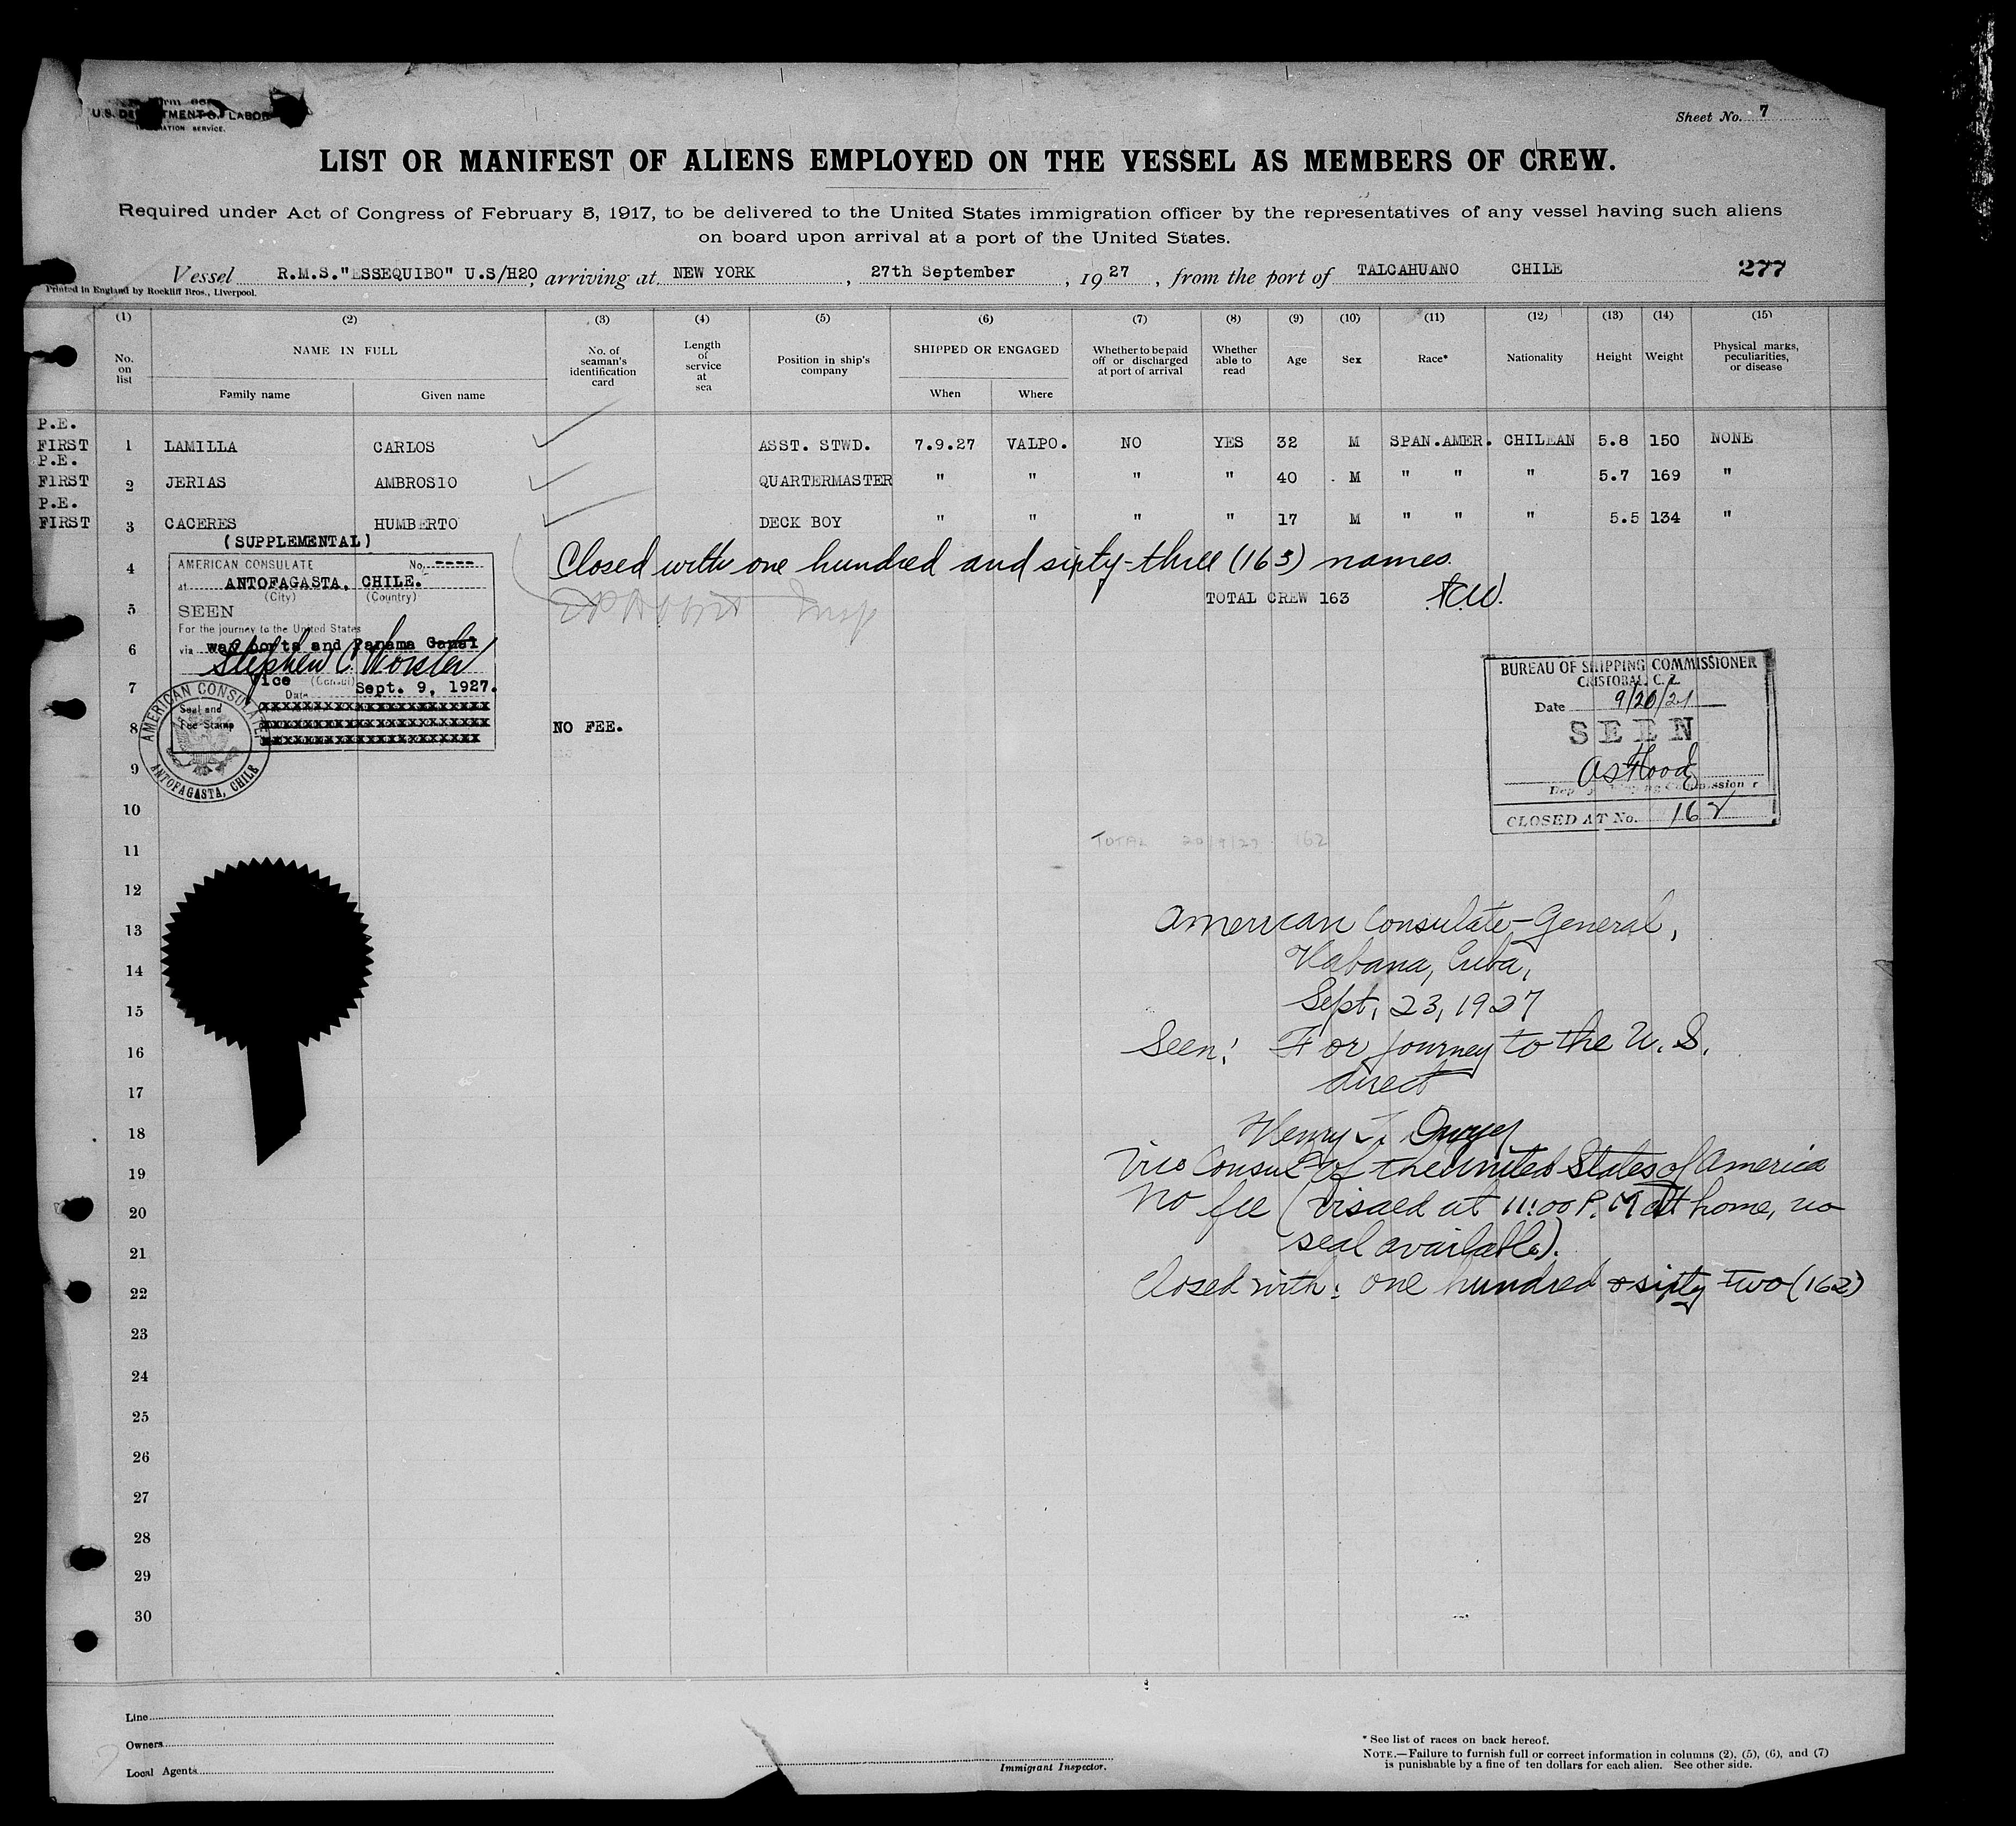 Sheet No. 7
U.S. DEPARTMENT OF LABOR
IMMIGRATION SERVICE.
LIST OR MANIFEST OF ALIENS EMPLOYED ON THE VESSEL AS MEMBERS OF CREW.
Required under Act of Congress of February 5, 1917, to be delivered to the United States immigration officer by the representatives of any vessel having such aliens
on board upon arrival at a port of the United States.
Vessel R.M.S."ESSEQUIBO" U.S/H20, arriving at NEW YORK, 27th September, 1927, from the port of TALCAHUANO CHILE 277
Printed in England by Rockliff Bros., Liverpool.
(1) (2) (3) (4) (5) (6) (7) (8) (9) (10) (11) (12) (13) (14) (15)
No. on list NAME IN FULL No. of seaman's identification card Length of service at sea Position in ship's company SHIPPED OR ENGAGED Whether to be paid off or discharged at port of arrival Whether able to read Age Sex Race* Nationality Height Weight Physical marks, peculiarities, or disease
Family name Given name When Where
P.E.
FIRST 1 LAMILLA CARLOS ASST. STWD. 7.9.27 VALPO. NO YES 32 M SPAN.AMER. CHILEAN 5.8 150 NONE
P.E.
FIRST 2 JERIAS AMBROSIO QUARTERMASTER " " " " 40 M " " " 5.7 169 "
P.E.
FIRST 3 CACERES HUMBERTO DECK BOY " " " " 17 M " " " 5.5 134 "
(SUPPLEMENTAL)
AMERICAN CONSULATE No. ----
at ANTOFAGASTA, CHILE.
(City) (Country)
SEEN
For the journey to the United States
via way ports and Panama Canal
Stephen C. Worster
Vice (Consul)
Date Sept. 9, 1927.
Seal and
Fee Stamp
AMERICAN CONSULATE
ANTOFAGASTA, CHILE
NO FEE.
4 Closed with one hundred and sixty-three (163) names.
5 TOTAL CREW 163
Insp
6
7
8
9
10
11
12
13
14
15
16
17
18
19
20
21
22
23
24
25
26
27
28
29
30
BUREAU OF SHIPPING COMMISSIONER
CRISTOBAL, C. Z.
Date 9/20/27
SEEN
Deputy Shipping Commissioner
CLOSED AT No. 162
TOTAL 20/9/27 162
American Consulate-General,
Habana, Cuba,
Sept. 23, 1927
Seen: For journey to the U. S.
direct
Henry T. Dwyer
Vice Consul of the United States of America
No fee (Visaed at 11:00 P.M at home, no
seal available).
Closed with: one hundred & sixty two (162)
Line
Owners
Local Agents
Immigrant Inspector.
* See list of races on back hereof.
NOTE.—Failure to furnish full or correct information in columns (2), (5), (6), and (7)
is punishable by a fine of ten dollars for each alien. See other side.